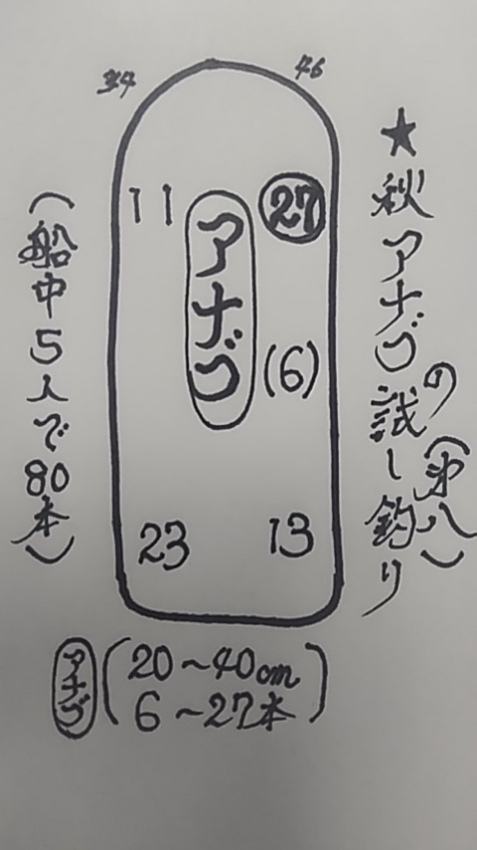 ★秋アナゴの試し釣り
(第八)
34
46
11
27
アナゴ
(6)
23
13
(船中5人で80本)
アナゴ
20~40cm
6~27本